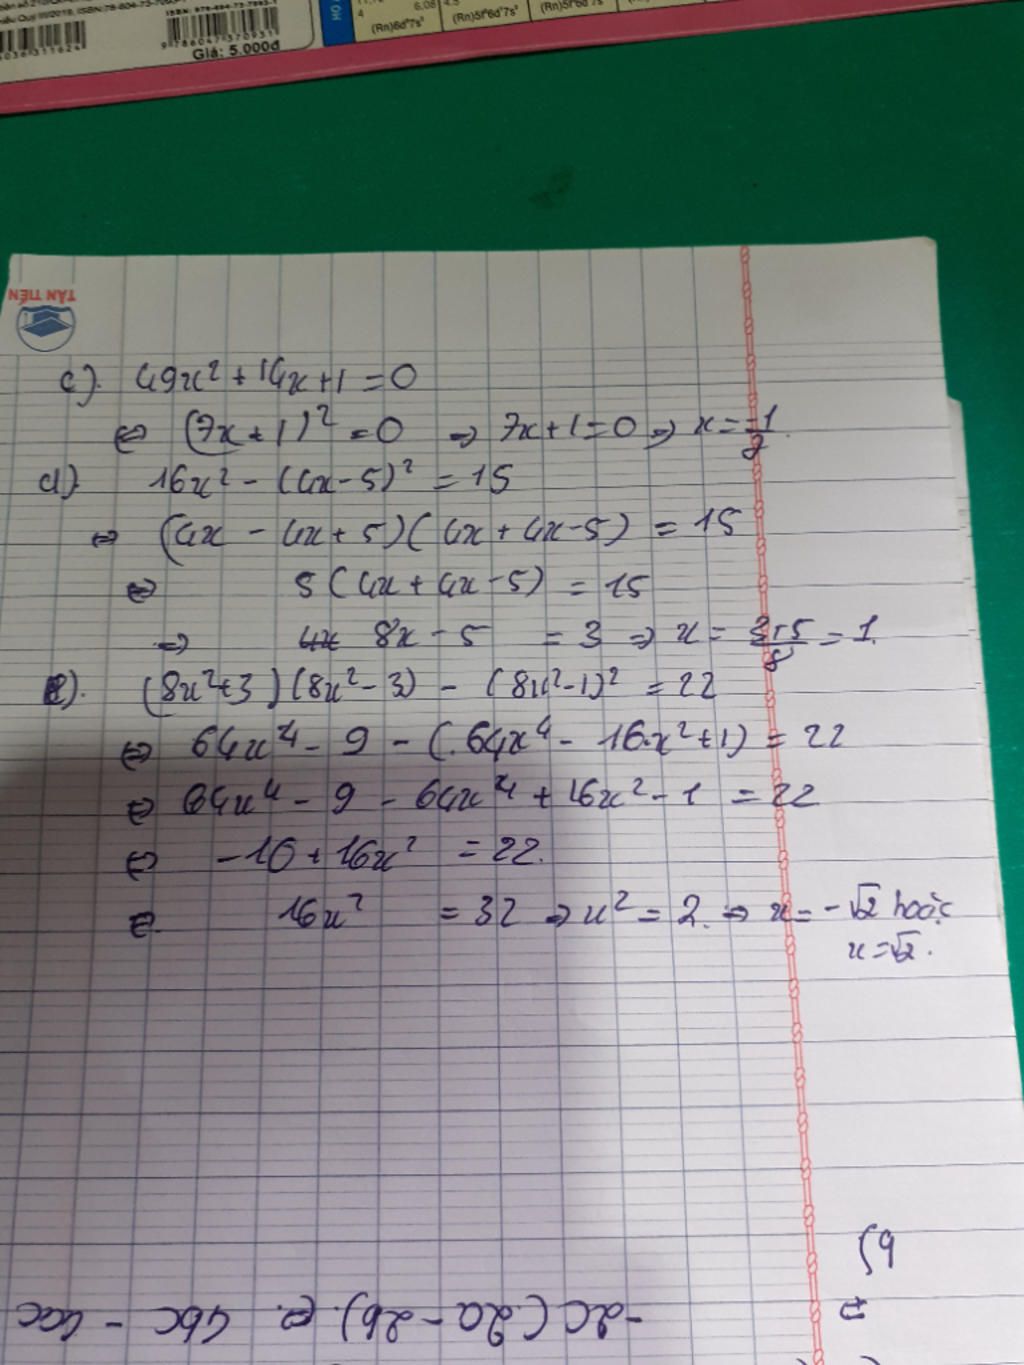 Giá: 5.000đ
9 786047 370931
6,08
(Rn)6d²7s²
(Rn)5f²6d¹7s²
TÂN TIẾN
c). 49x² + 14x + 1 = 0
⇔ (7x + 1)² = 0 ⇒ 7x + 1 = 0 ⇒ x = -1/7.
d). 16x² - (4x - 5)² = 15
⇔ (4x - 4x + 5)(4x + 4x - 5) = 15
⇔ 5(4x + 4x - 5) = 15
⇒ 8x - 5 = 3 ⇒ x = 3+5/8 = 1.
e). (8x² + 3)(8x² - 3) - (8x² - 1)² = 22
⇔ 64x⁴ - 9 - (64x⁴ - 16x² + 1) = 22
⇔ 64x⁴ - 9 - 64x⁴ + 16x² - 1 = 22
⇔ -10 + 16x² = 22.
⇔ 16x² = 32 ⇒ x² = 2. ⇒ x = -√2 hoặc
x = √2.
b)
-2c(2a - 2b). ⇔ 4bc - 4ac